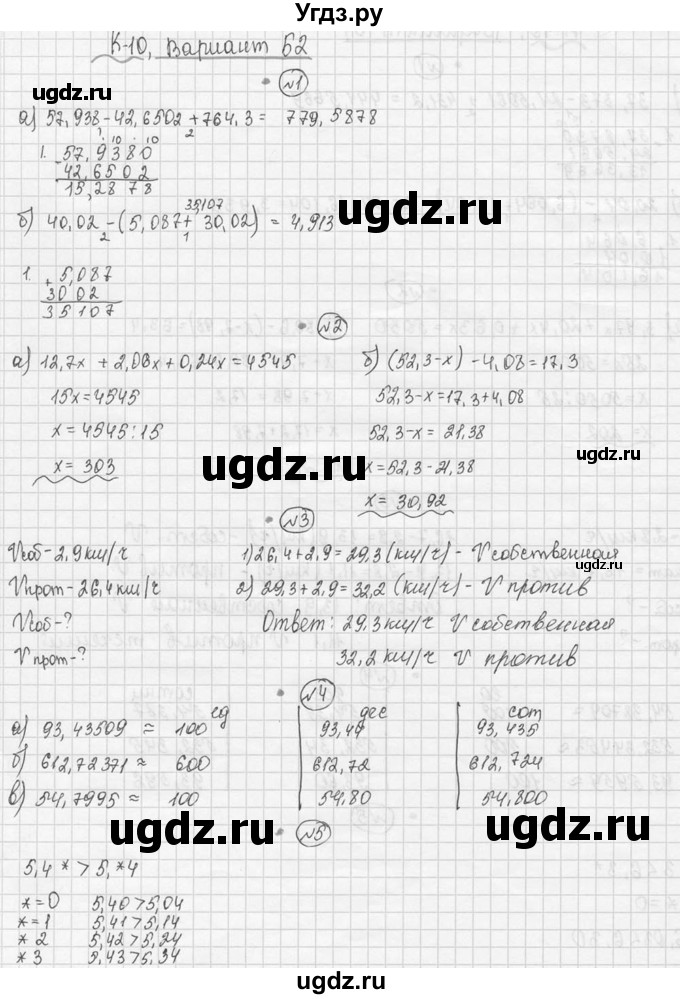 Угдз.ру
К-10, Вариант Б2
№1
а) 57,938-42,6502+764,3= 779,5878
2
1. 57,9380
- 42,6502
15,2878
35,107
б) 40,02-(5,087+30,02) = 4,913
2 1
1. 5,087
+ 30 02
35 107
№2
а) 12,7x + 2,06x+0,24x=4545
15x=4545
x=4545:15
x= 303
б) (52,3-x) -4,08=17,3
52,3-x=17,3+4,08
52,3-x= 21,38
x=52,3-21,38
x= 30,92
№3
Vсоб-2,9км/ч
Vпрот-26,4км/ч
Vсоб-?
Vпрот-?
1)26,4+2,9=29,3(км/ч)- V собственная
2)29,3+2,9=32,2(км/ч)- V против
Ответ: 29,3км/ч V собственная
32,2км/ч V против
№4
ед дес сот
а) 93,43509 ≈ 100 93,44 93,435
б) 612,72371≈600 612,72 612,724
в) 54,7995≈ 100 54,80 54,800
№5
5,4*>5,*4
*=0 5,40>5,04
*=1 5,41>5,14
* 2 5,42>5,24
* 3 5,43>5,34
ugdz.ru
ugdz.ru
ugdz.ru
ugdz.ru
ugdz.ru
ugdz.ru
ugdz.ru
ugdz.ru
ugdz.ru
ugdz.ru
ugdz.ru
ugdz.ru
ugdz.ru